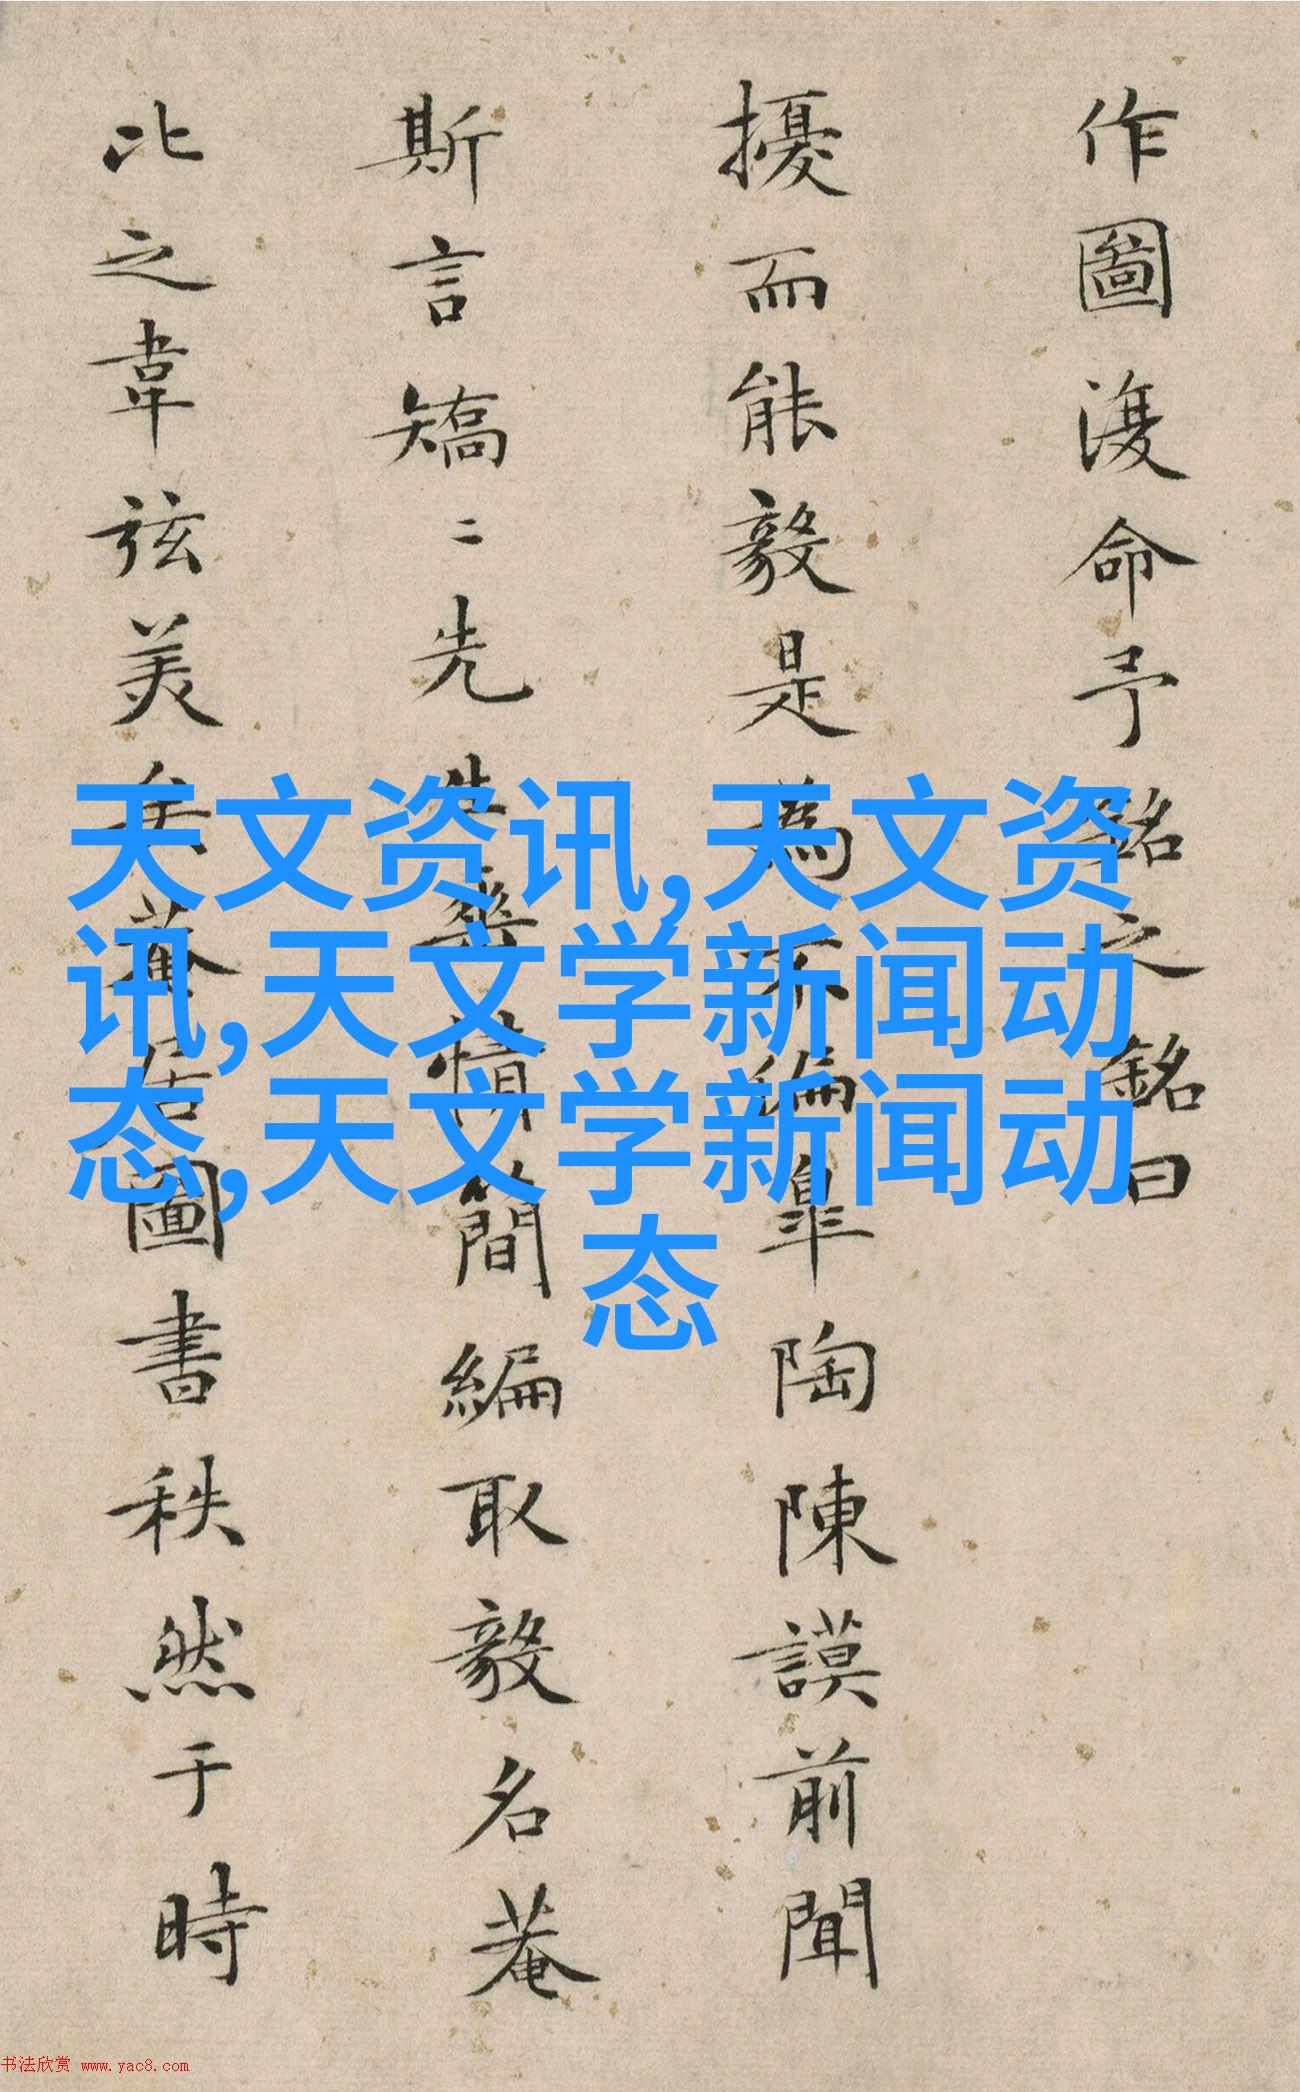 作圖復命予銘之銘曰
擾而能毅是為不偏皐陶陳謨前聞
斯言矯二先生情簡編取毅名菴
比之韋弦美矣菴居圖書秩然于時
天文资讯,天文资
讯,天文学新闻动
态,天文学新闻动
态
书法欣赏 www.yac8.com